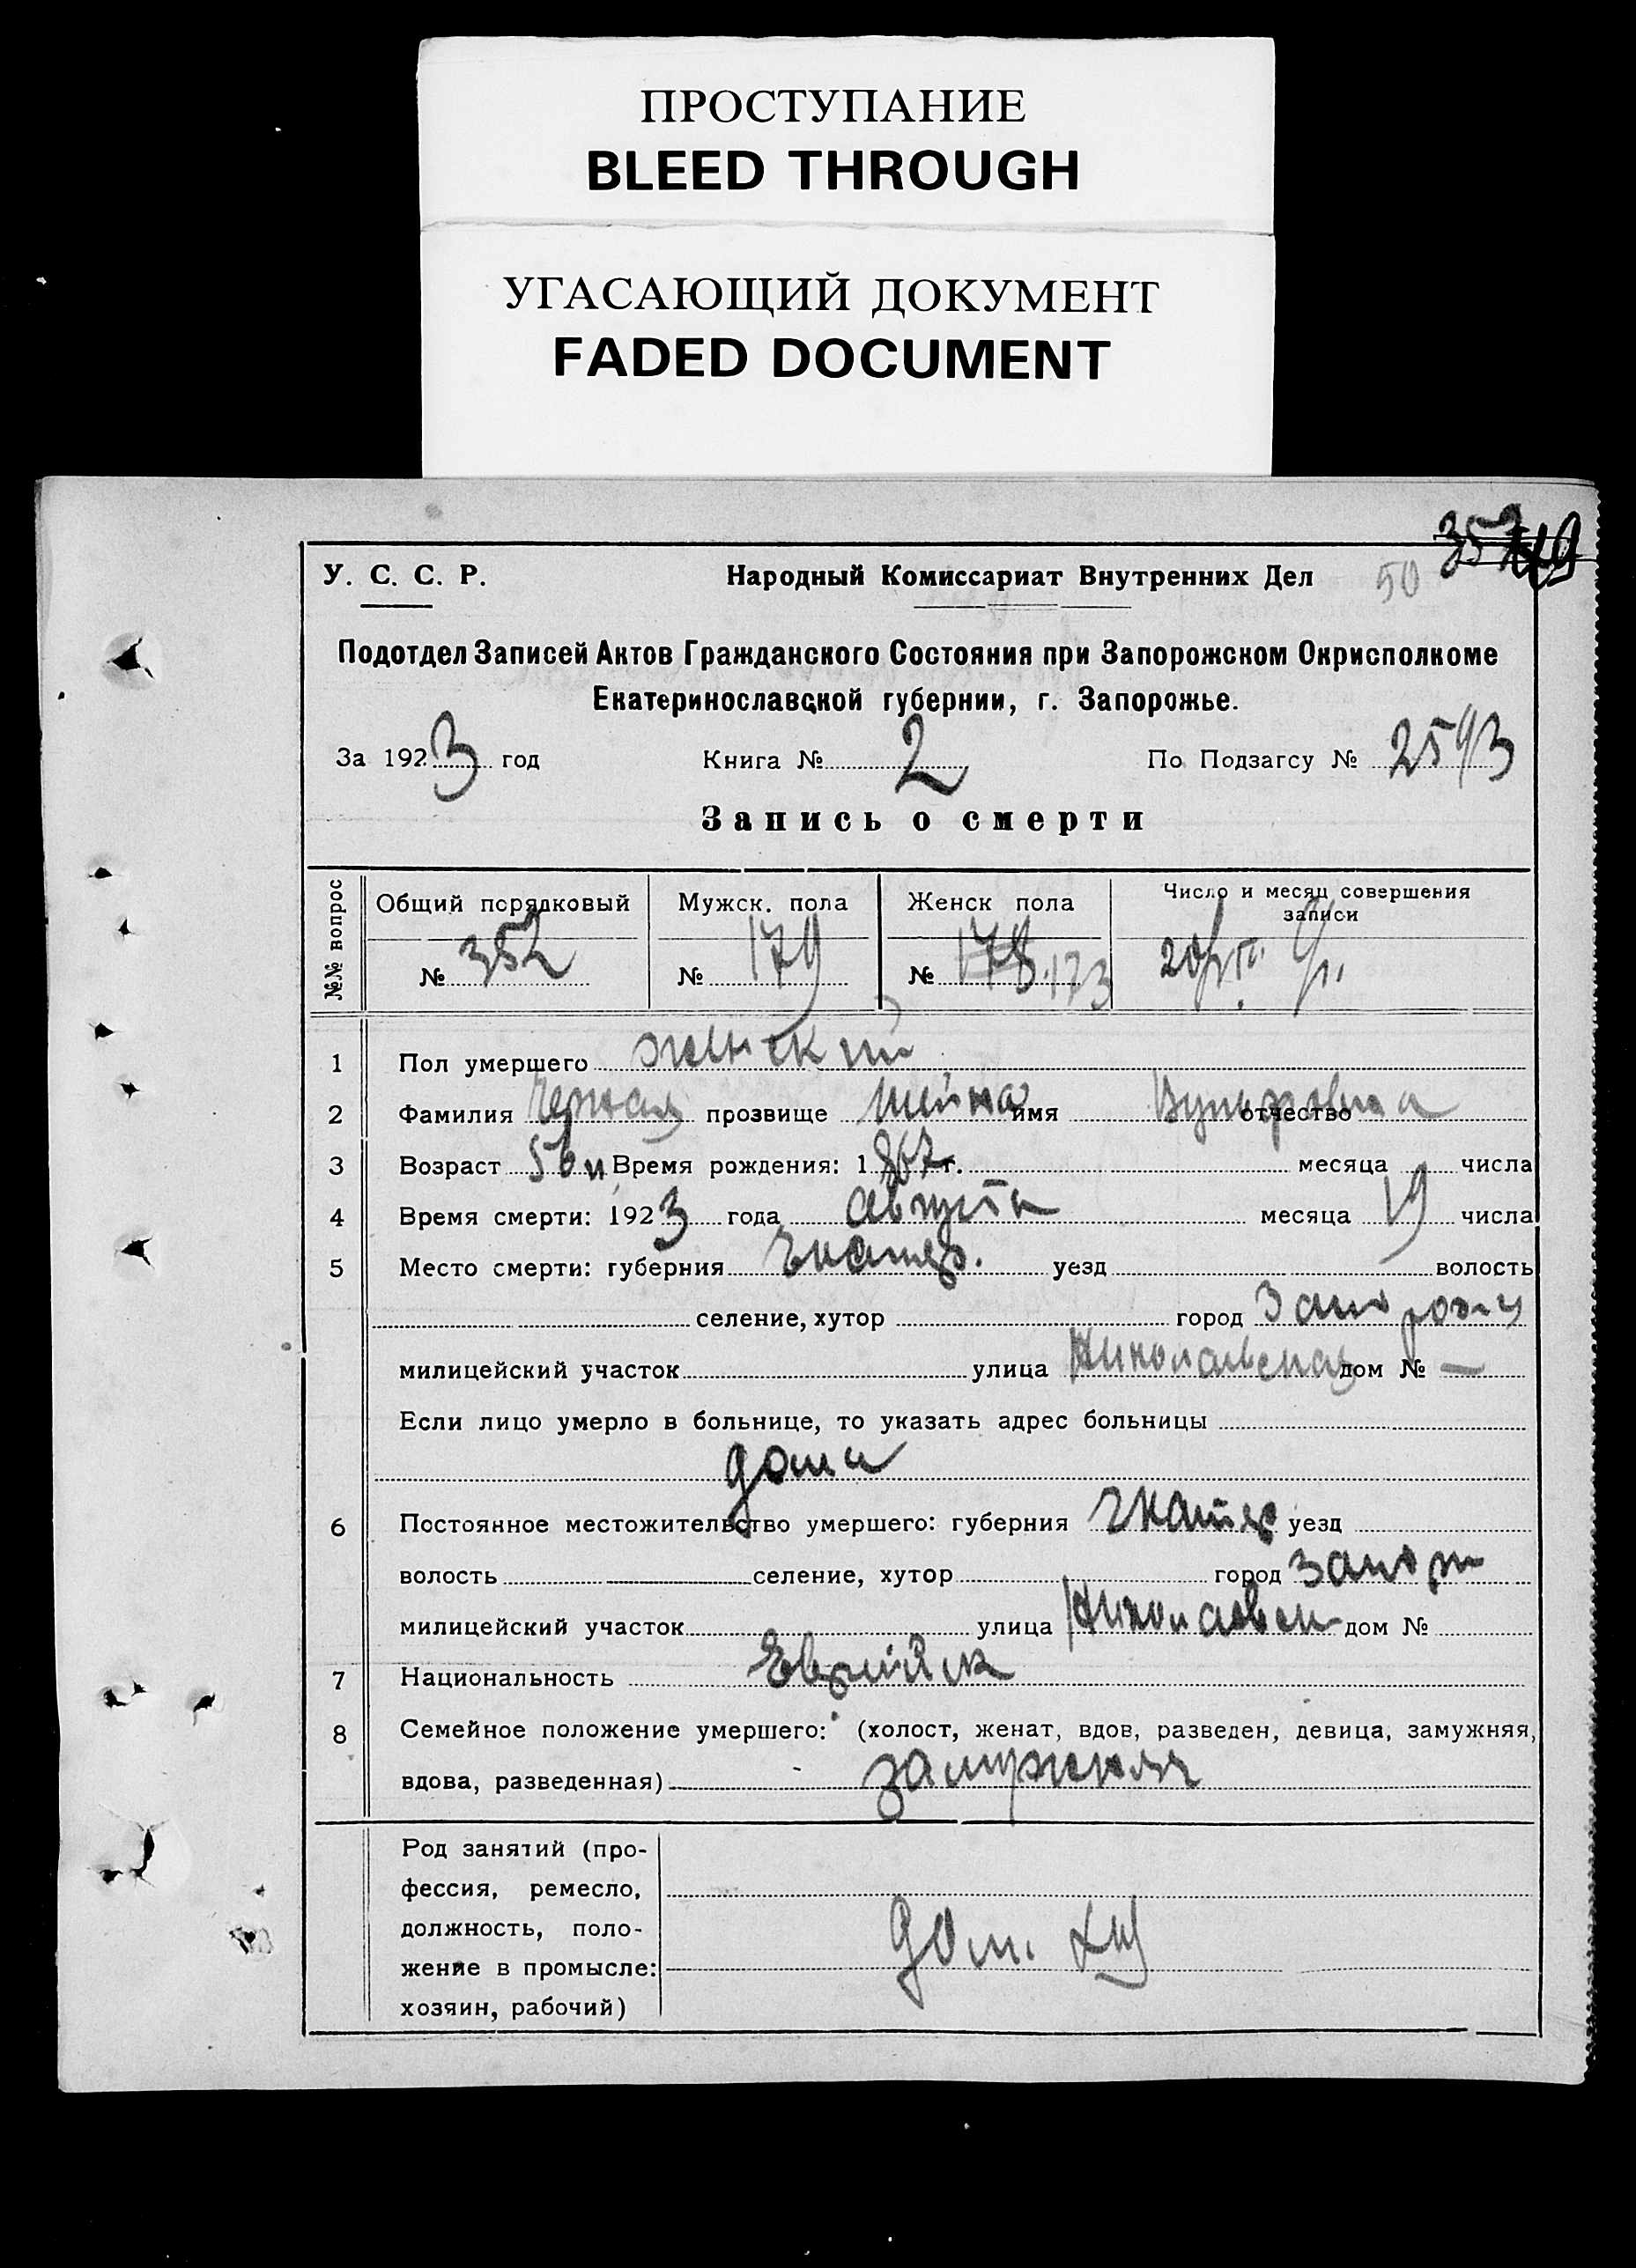 ПРОСТУПАНИЕ
BLEED THROUGH
УГАСАЮЩИЙ ДОКУМЕНТ
FADED DOCUMENT
50
У. С. С. Р. Народный Комиссариат Внутренних Дел
Подотдел Записей Актов Гражданского Состояния при Запорожском Окрисполкоме
Екатеринославской губернии, г. Запорожье.
За 1923 год Книга № 2 По Подзагсу № 2593
Запись о смерти
№№ вопрос Общий порядковый Мужск. пола Женск пола Число и месяц совершения записи
№ 352 № 179 № 178. 173 20/
1 Пол умершего женский
2 Фамилия Черная прозвище Шейна имя Вульфовна отчество
3 Возраст 56 Время рождения: 1867 г. месяца числа
4 Время смерти: 1923 года августа месяца 19 числа
5 Место смерти: губерния Екатер. уезд волость
селение, хутор город Запорожье
милицейский участок улица Николаевская дом № —
Если лицо умерло в больнице, то указать адрес больницы
дома
6 Постоянное местожительство умершего: губерния Екатер уезд
волость селение, хутор город Запор
милицейский участок улица Николаевск дом №
7 Национальность Еврейск
8 Семейное положение умершего: (холост, женат, вдов, разведен, девица, замужняя,
вдова, разведенная) замужняя
Род занятий (про-
фессия, ремесло,
должность, поло- дом. хоз
жение в промысле:
хозяин, рабочий)